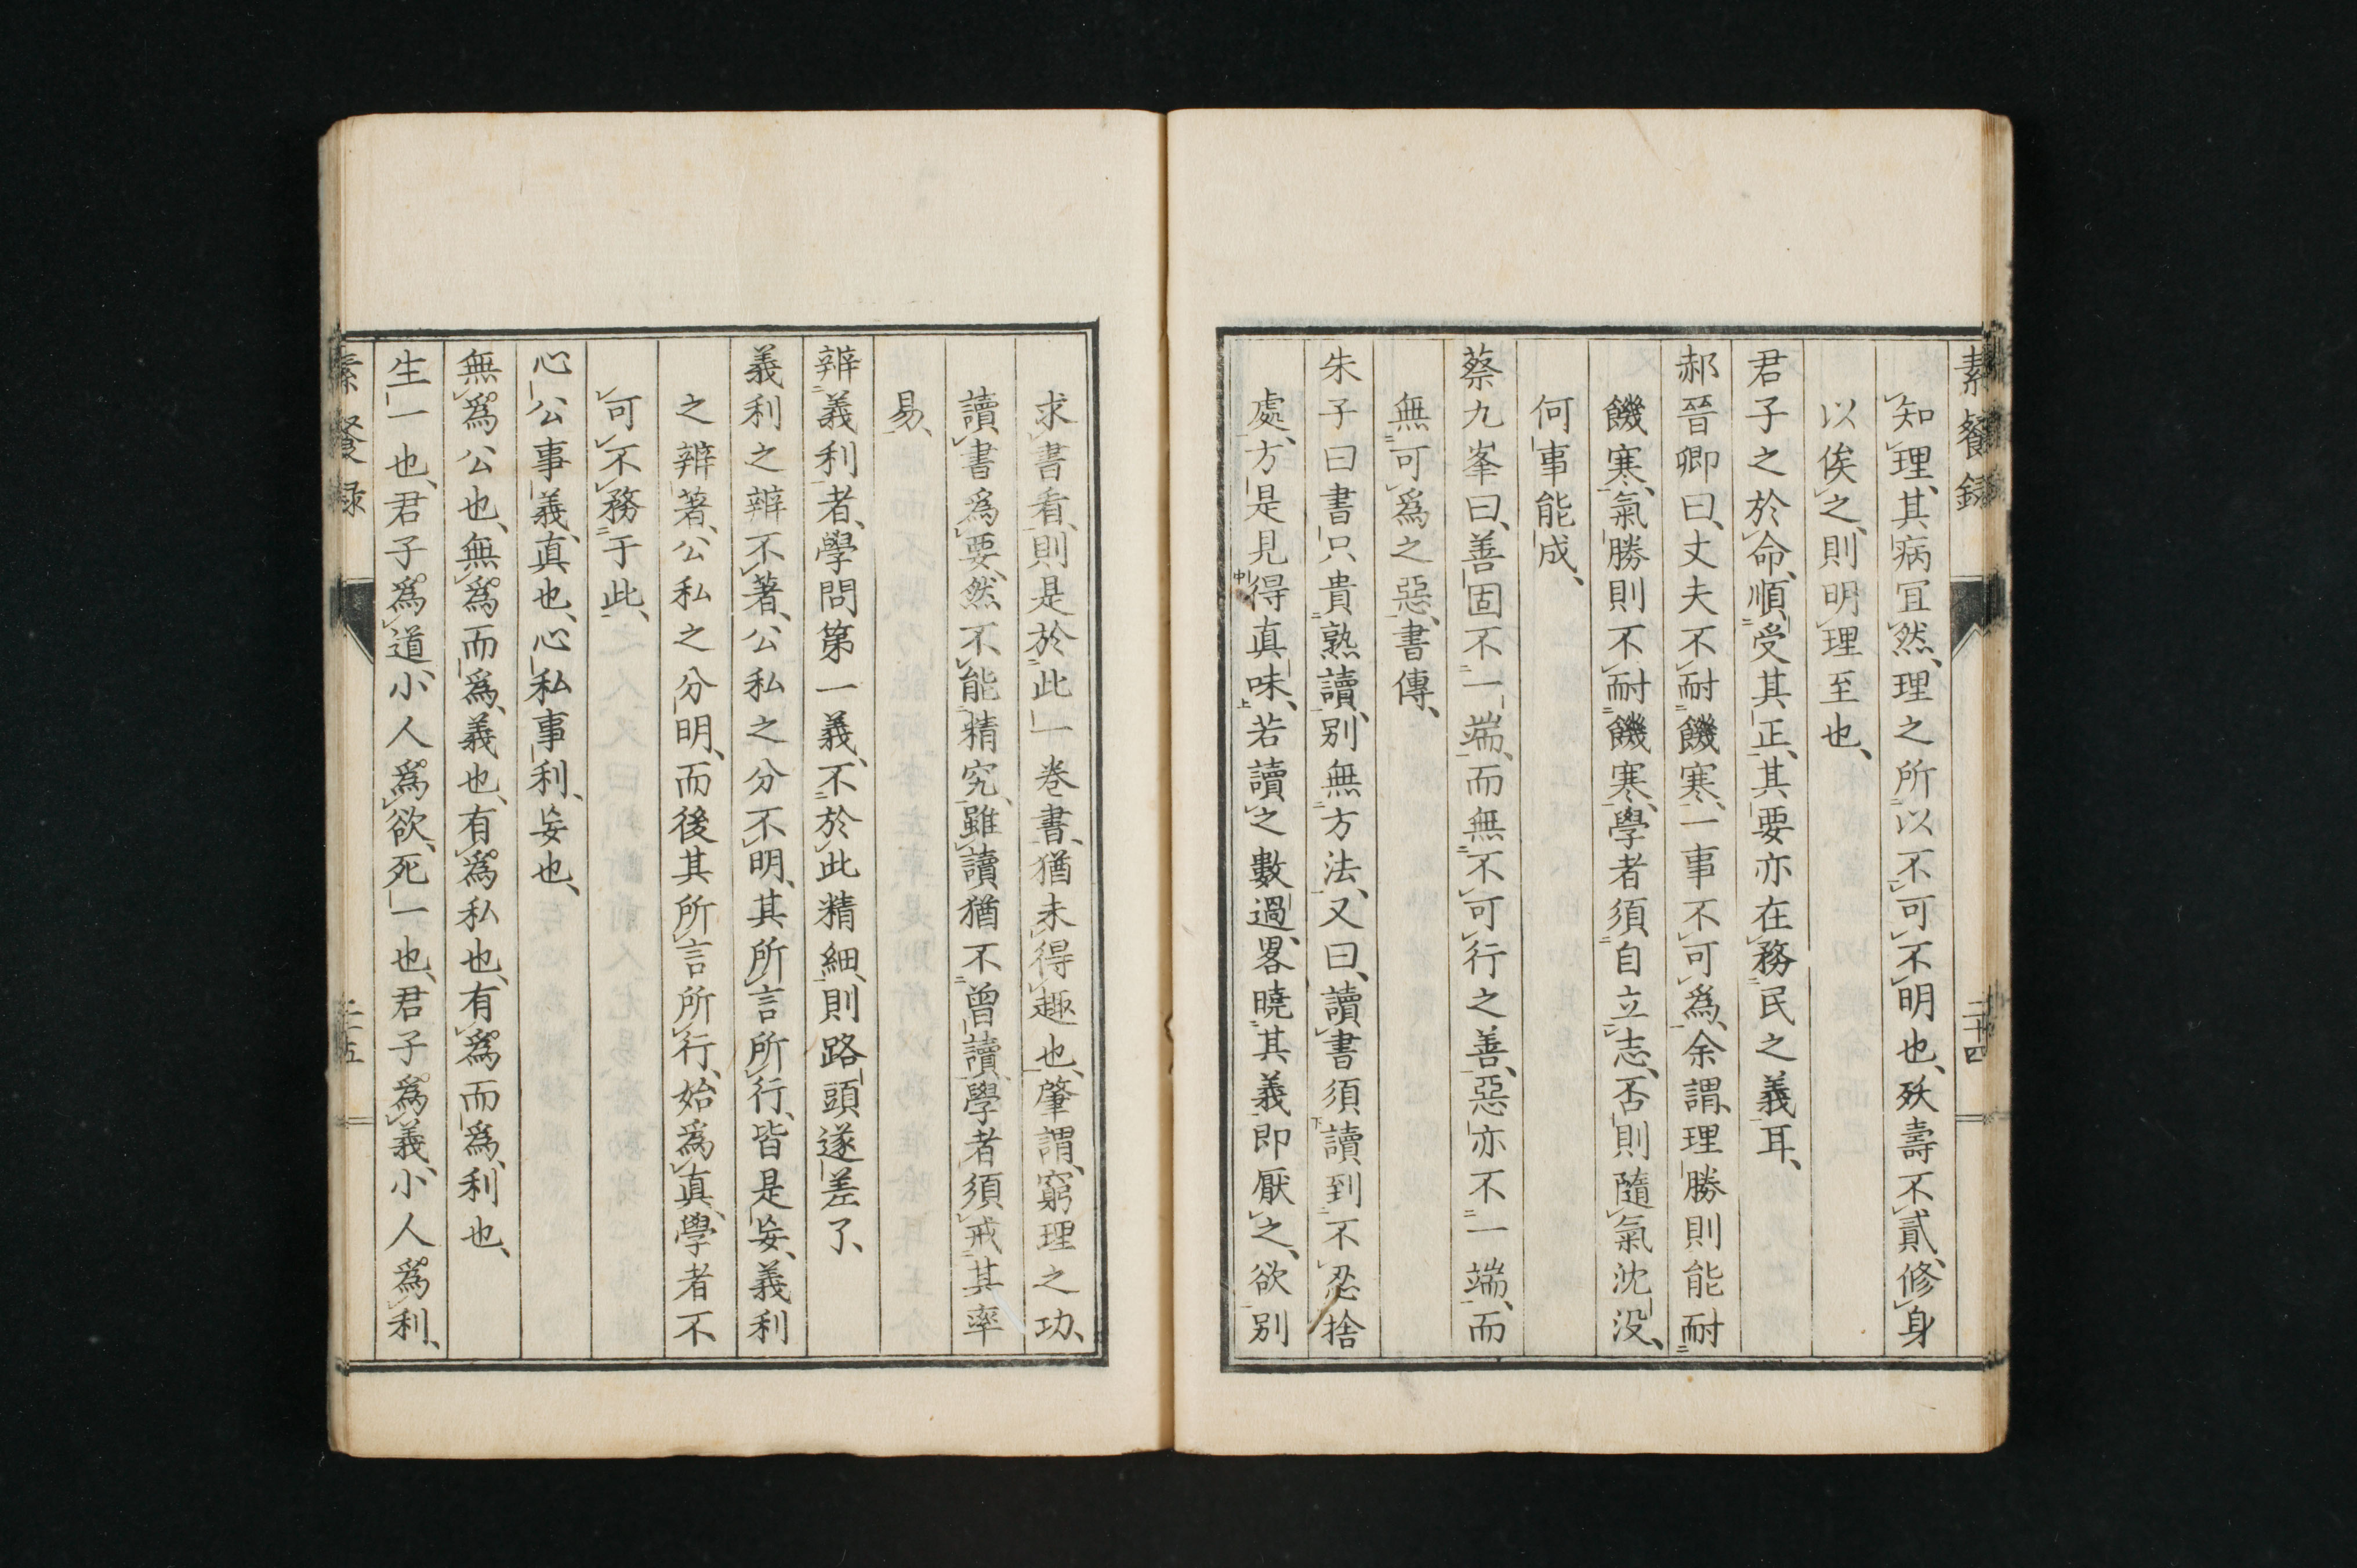 素餐録 二十四
知理、其病宜然、理之所以不可不明也、殀壽不貳、修身
以俟之、則明理至也、
君子之於命、順受其正、其要亦在務民之義耳、
郝晉卿曰、丈夫不耐饑寒、一事不可爲、余謂、理勝則能耐
饑寒、氣勝則不耐饑寒、學者須自立志、否則隨氣沈沒、
何事能成、
蔡九峯曰、善固不一端、而無不可行之善、惡亦不一端、而
無可爲之惡、書傳、
朱子曰書只貴熟讀、別無方法、又曰、讀書須讀到不忍捨
處、方是見得真味、若讀之數過、畧曉其義即厭之、欲別
求書看、則是於此一卷書、猶未得趣也、肇謂、窮理之功、
讀書爲要、然不能精究、雖讀猶不曾讀、學者須戒其率
易、
辨義利者、學問第一義、不於此精細、則路頭遂差了、
義利之辨不著、公私之分不明、其所言所行、皆是妄、義利
之辨著、公私之分明、而後其所言所行、始爲真、學者不
可不務于此、
心公事義、真也、心私事利、妄也、
無爲公也、無爲而爲、義也、有爲私也、有爲而爲、利也、
生一也、君子爲道、小人爲欲、死一也、君子爲義、小人爲利、
素餐録 二十五